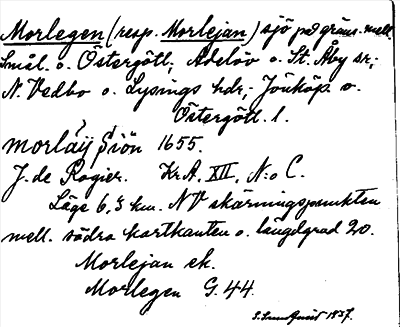 Morlegen (resp. Morlejan) sjö på gräns. mell.
Smål. o. Östergötl; Adelöv o. St. Åby sr;
N. Vedbo o. Lysings hdr; Jönköp o.
Östergötl. l.
morläÿ Siön 1655.
J. de Rogier. Kr.A. XII, N:o C.
Läge 6,3 km. NV skärningspunkten
mell. södra kartkanten o. längdgrad 20.
Morlejan ek.
Morlegen G.44.
1937.